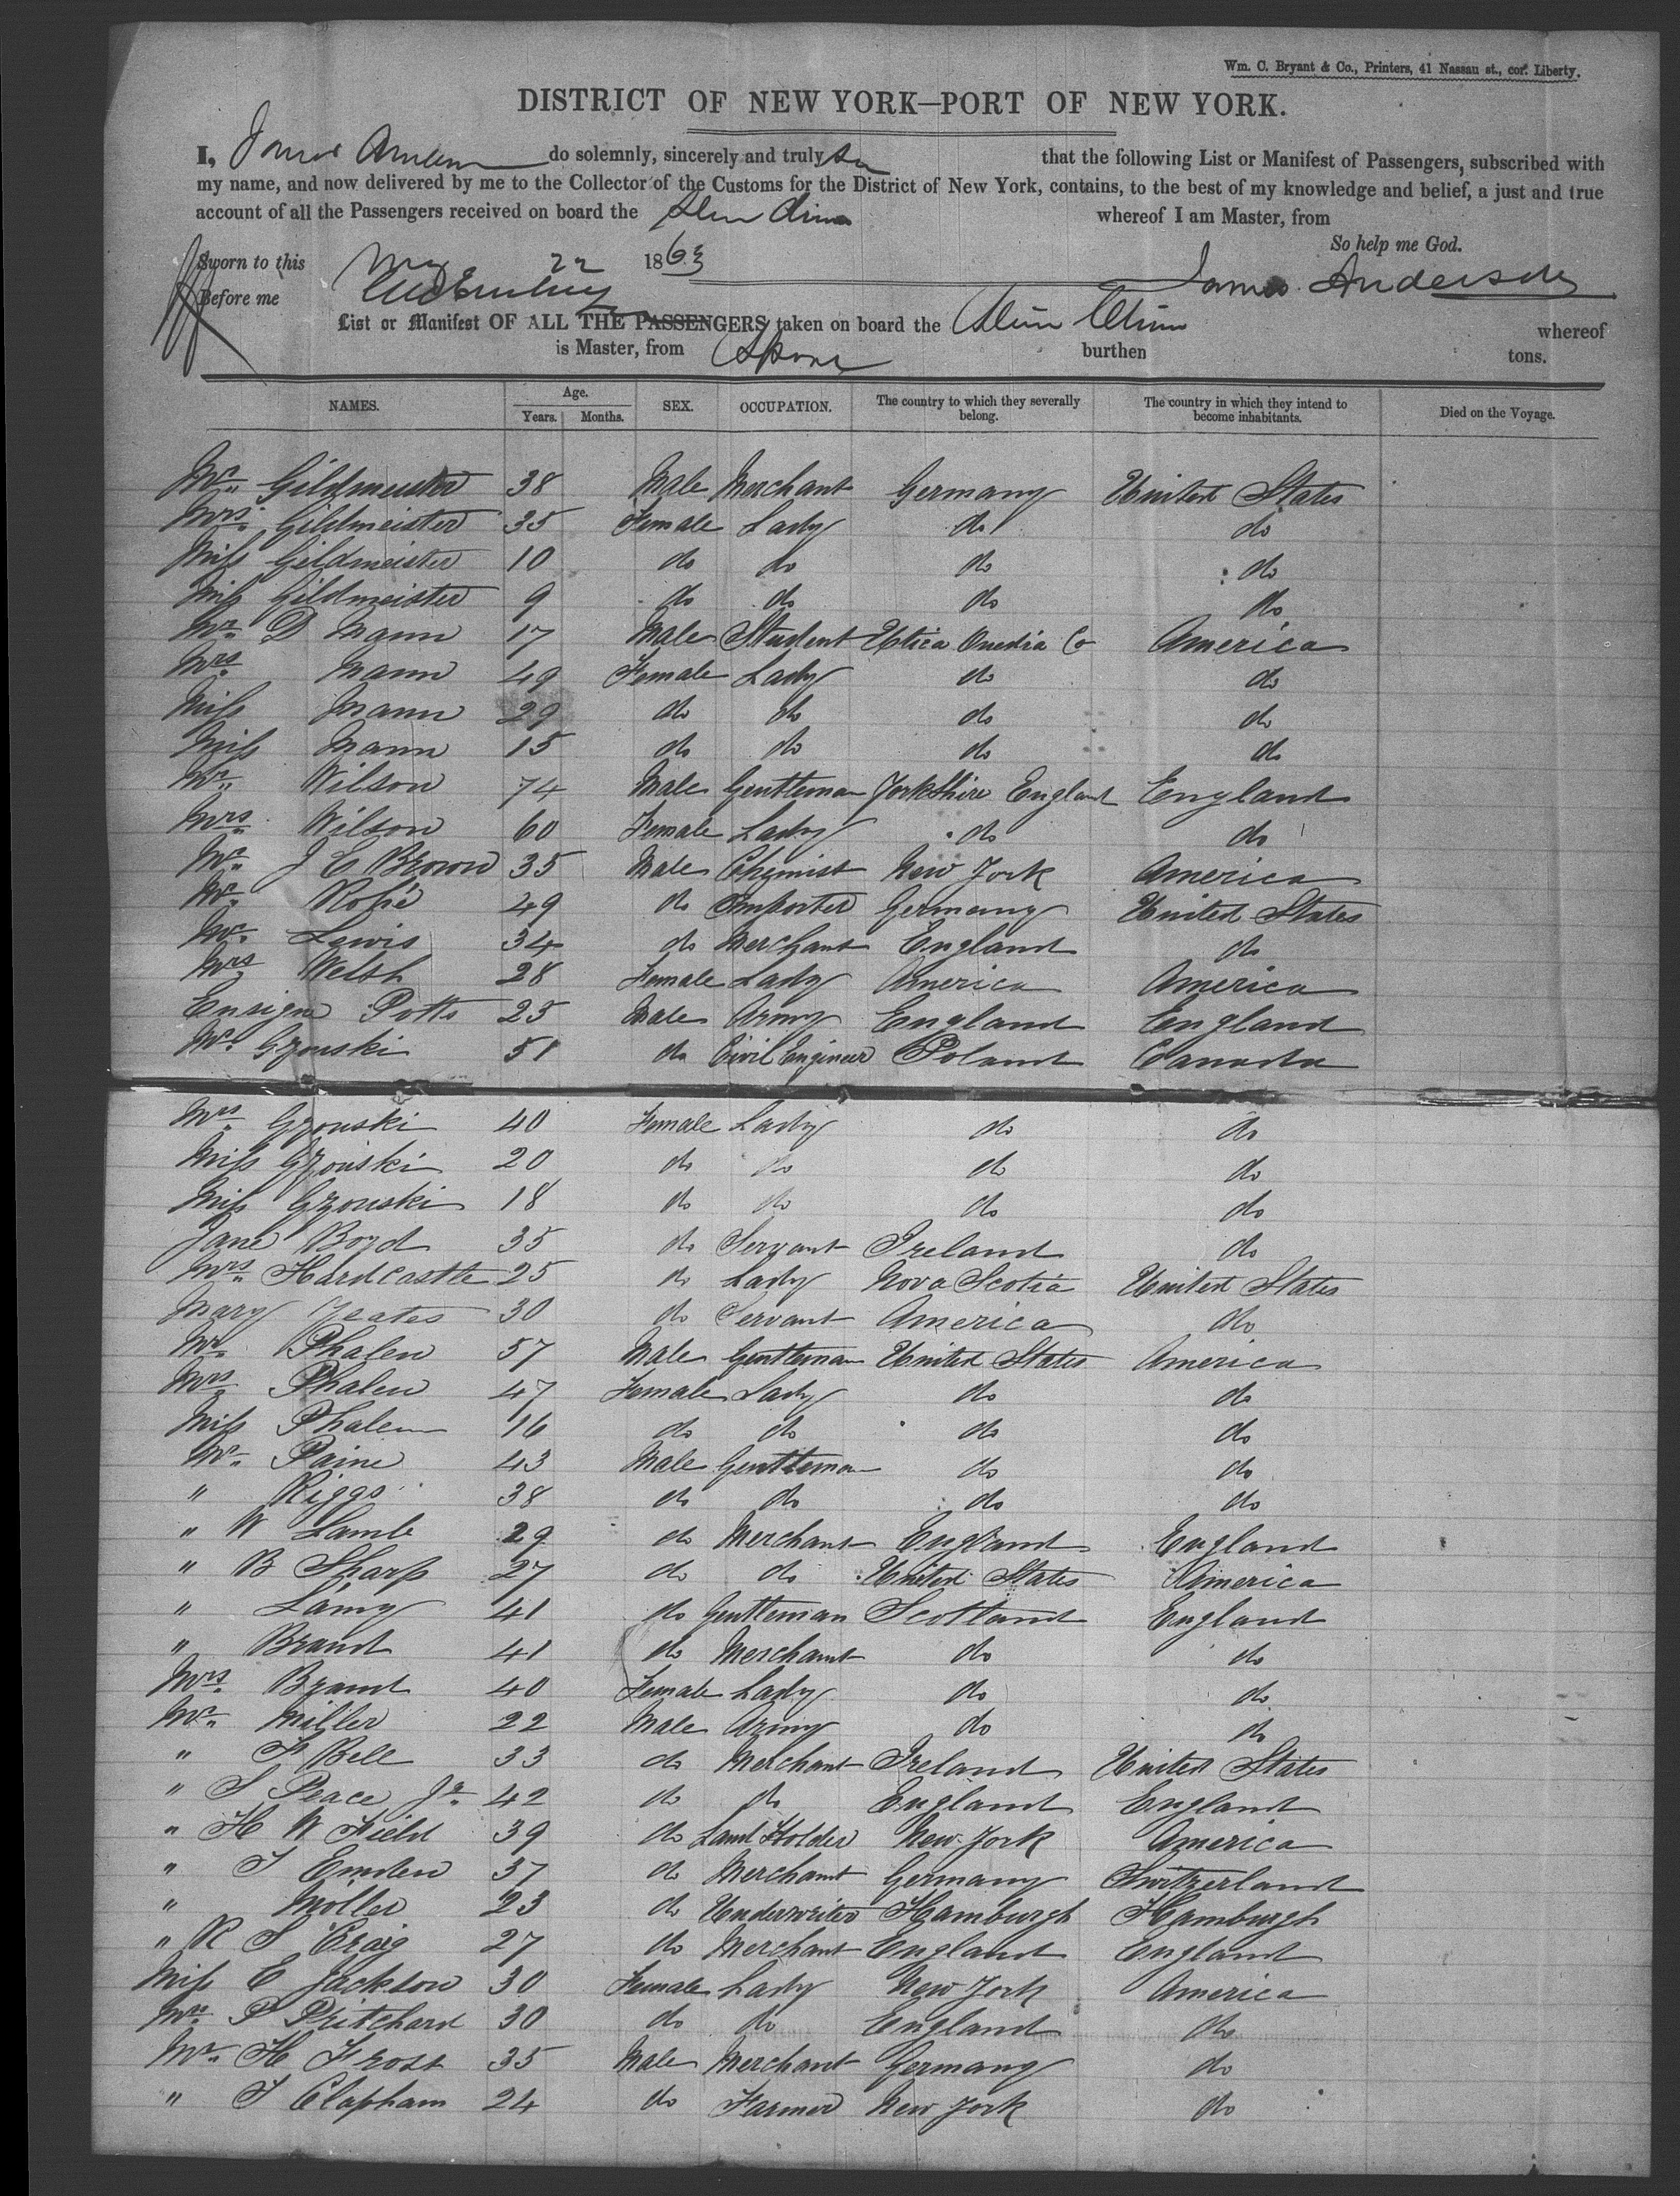 Wm. C. Bryant & Co., Printers, 41 Nassau st., cor. Liberty.
DISTRICT OF NEW YORK—PORT OF NEW YORK.
I, James Anderson do solemnly, sincerely and truly that the following List or Manifest of Passengers, subscribed with
my name, and now delivered by me to the Collector of the Customs for the District of New York, contains, to the best of my knowledge and belief, a just and true
account of all the Passengers received on board the whereof I am Master, from
So help me God.
Sworn to this May 22 1863
James Anderson
Before me
List or Manifest OF ALL THE PASSENGERS taken on board the whereof
is Master, from burthen tons.
NAMES. Age. Years. Months. SEX. OCCUPATION. The country to which they severally belong. The country in which they intend to become inhabitants. Died on the Voyage.
Mr. Gildmeister 38 Male Merchant Germany United States
Mrs. Gildmeister 35 Female Lady do do
Miss Gildmeister 10 do do do do
Miss Gildmeister 9 do do do do
Mr. D Mann 17 Male Student Utica Onedia Co America
Mrs. Mann 49 Female Lady do do
Miss Mann 29 do do do do
Miss Mann 15 do do do do
Mr. Wilson 74 Male Gentleman Yorkshire England England
Mrs. Wilson 60 Female Lady do do
Mr. J E Brown 35 Male Chymist New York America
Mr. 49 do Importer Germany United States
Mr. Lewis 34 do Merchant England do
Mrs. Welsh 28 Female Lady America America
Ensign Potts 25 Male Army England England
Mr. Gzouski 51 do Civil Engineer Poland Canada
Mrs. Gzouski 40 Female Lady do do
Miss Gzouski 20 do do do do
Miss Gzouski 18 do do do do
Jane Boyd 35 do Servant Ireland do
Mrs. Hardcastle 25 do Lady Nova Scotia United States
Mary Yeates 30 do Servant America do
Mr. Phalen 57 Male Gentleman United States America
Mrs. Phalen 47 Female Lady do do
Miss Phalen 16 do do do do
Mr. Paine 43 Male Gentleman do do
" Riggs 38 do do do do
" W Lamb 29 do Merchant England England
" B Sharp 27 do do United States America
" Lamy 41 do Gentleman Scotland England
" Brand 41 do Merchant do do
Mrs. Brand 40 Female Lady do do
Mr. Miller 22 Male Army do do
" F Bell 33 do Merchant Ireland United States
" S Peace Jr. 42 do do England England
" H W Field 39 do Land Holder New York America
" J Emden 37 do Merchant Germany Switzerland
" Moller 23 do Underwriter Hamburgh Hamburgh
" R S Craig 27 do Merchant England England
Miss E Jackson 30 Female Lady New York America
Mr. P Pritchard 30 do do England do
Mr. H Frost 35 Male Merchant Germany do
" J Clapham 24 do Farmer New York do